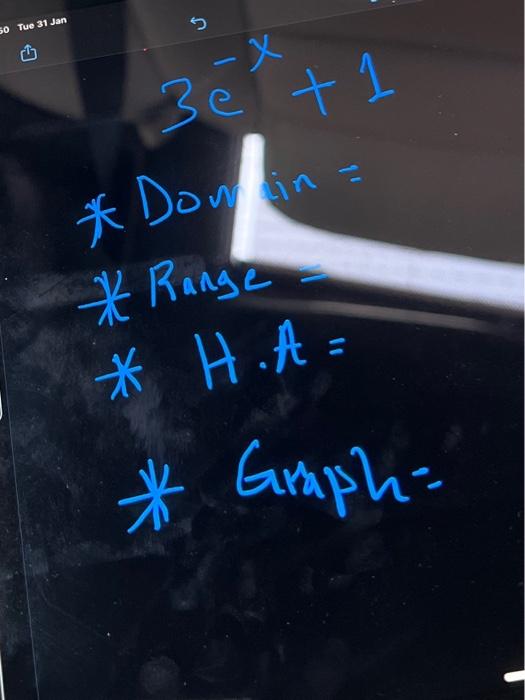 50 Tue 31 Jan
3e^-x + 1
* Domain =
* Range =
* H.A =
* Graph=